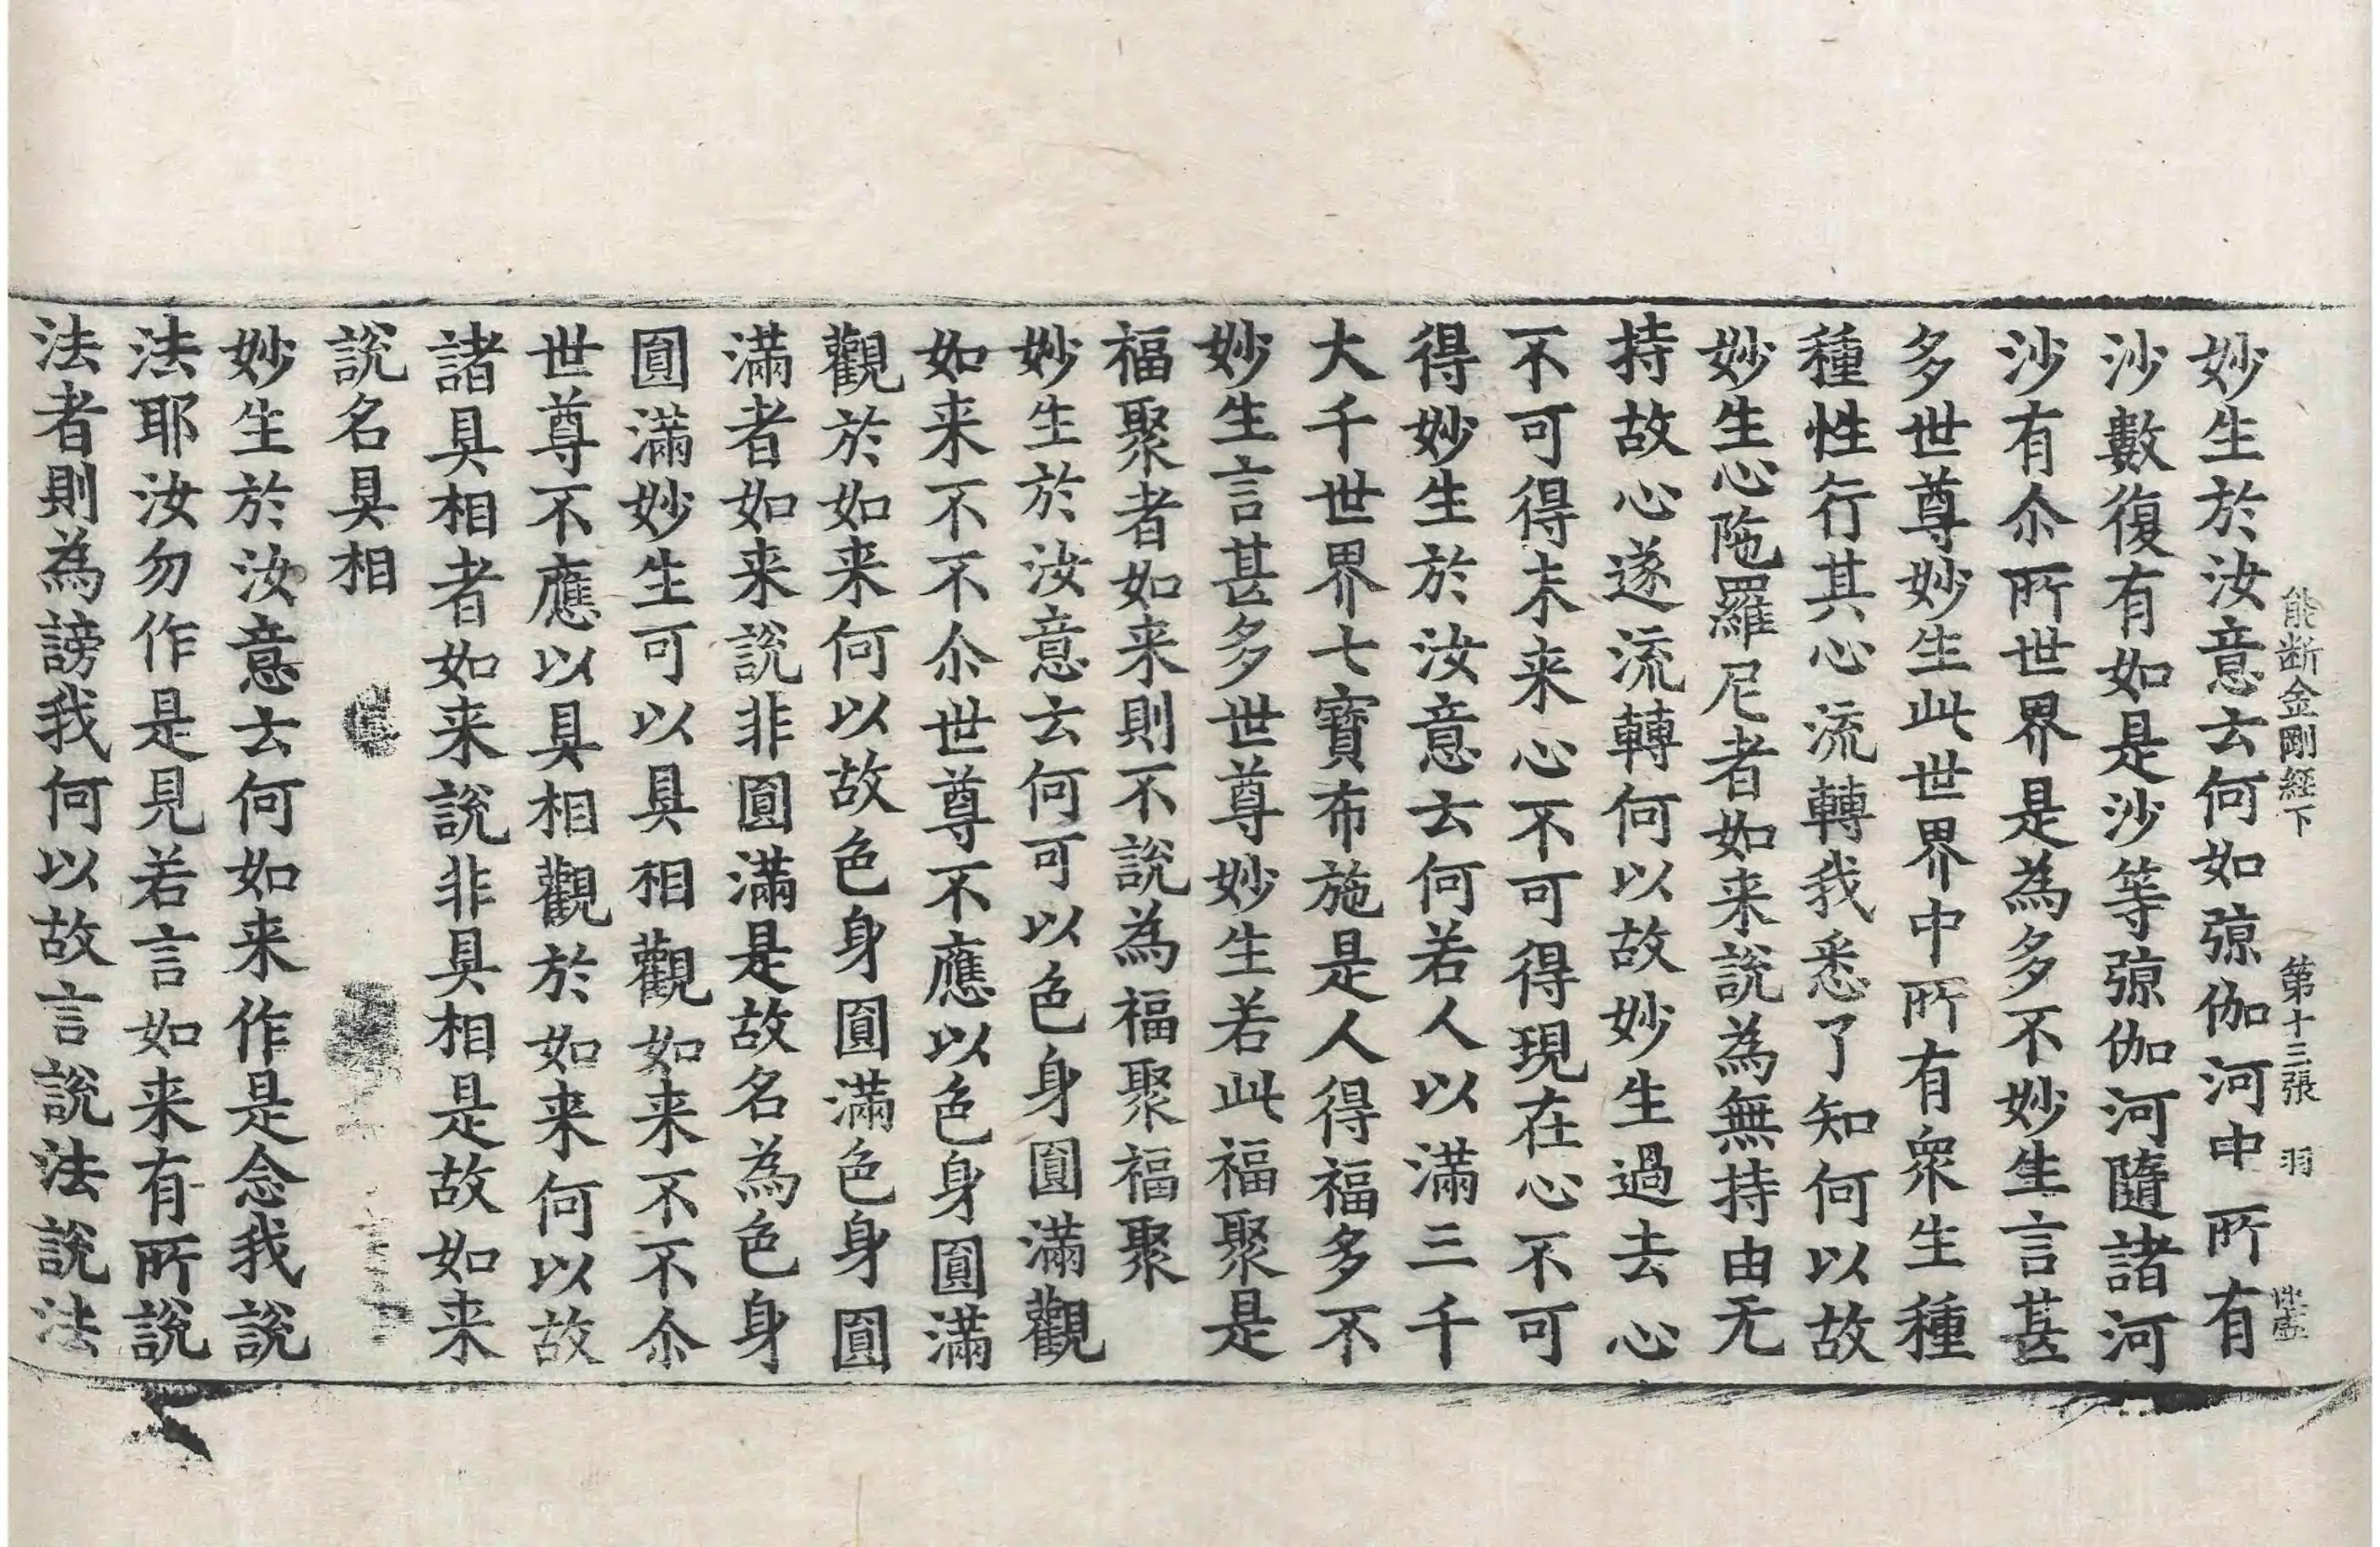 能断金剛経下 第十三張 羽
妙生於汝意云何如弶伽河中所有
沙數復有如是沙等弶伽河隨諸河
沙有尒所世界是為多不妙生言甚
多世尊妙生此世界中所有衆生種
種性行其心流轉我悉了知何以故
妙生心陁羅尼者如来說為無持由无
持故心遂流轉何以故妙生過去心
不可得未来心不可得現在心不可
得妙生於汝意云何若人以滿三千
大千世界七寶布施是人得福多不
妙生言甚多世尊妙生若此福聚是
福聚者如来則不說為福聚福聚
妙生於汝意云何可以色身圓滿觀
如来不不尒世尊不應以色身圓滿
觀於如来何以故色身圓滿色身圓
滿者如来說非圓滿是故名為色身
圓滿妙生可以具相觀如来不不尒
世尊不應以具相觀於如来何以故
諸具相者如来說非具相是故如来
說名具相
妙生於汝意云何如来作是念我說
法耶汝勿作是見若言如来有所說
法者則為謗我何以故言說法說法